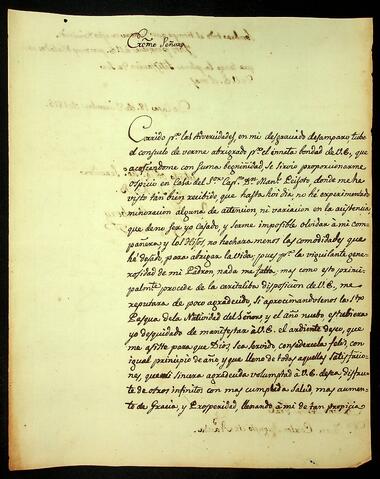 Exmo. Señor.
Corrido pr. las Adversidades, en mi desgraciado desamparo, tube
el consuelo de verme abrigado pr. el innata bondad de V.E., que
acojiendome con suma begninidad, se sirvio proporcionarme
ospicio en Casa del Sor. Capn. Dn. Manl. Peijoto, donde me he
visto tan bien recibido, que hasta hoi dia, no hé experimentado
minoracion alguna de atencion, ni variacion en la asistencia,
que de no ser yo casado, y serme imposible olvidar á mi com-
pañera, y los Hijos, no hechara menos las comodidades que
hé desado, para abrigar la vida; pues pr. la vigilante gene-
rosidad de mi Patron, nada me falta; mas como esto princi-
palmte. procede de la caritativa disposicion de V.E., me
reputara de poco agradecido, si aprocimandosenos las Stas.
Pasqua de la Natividad del Señor, y el año nuebo estubiera
yo descuidado de manifestar á V.E. el ardiente deseo, que
me asiste para que Dios, sea servido, concederselas felis, con
igual principio de año; y que lleno de todas aquellas satisfac-
ciones, que mi sincera agradecida voluntad á V.E. desea, disfru-
te de otros infinitos con mas cumplida salud, mas aumen-
to de Gracia, y Prosperidad, llenando á mi de tan propicia